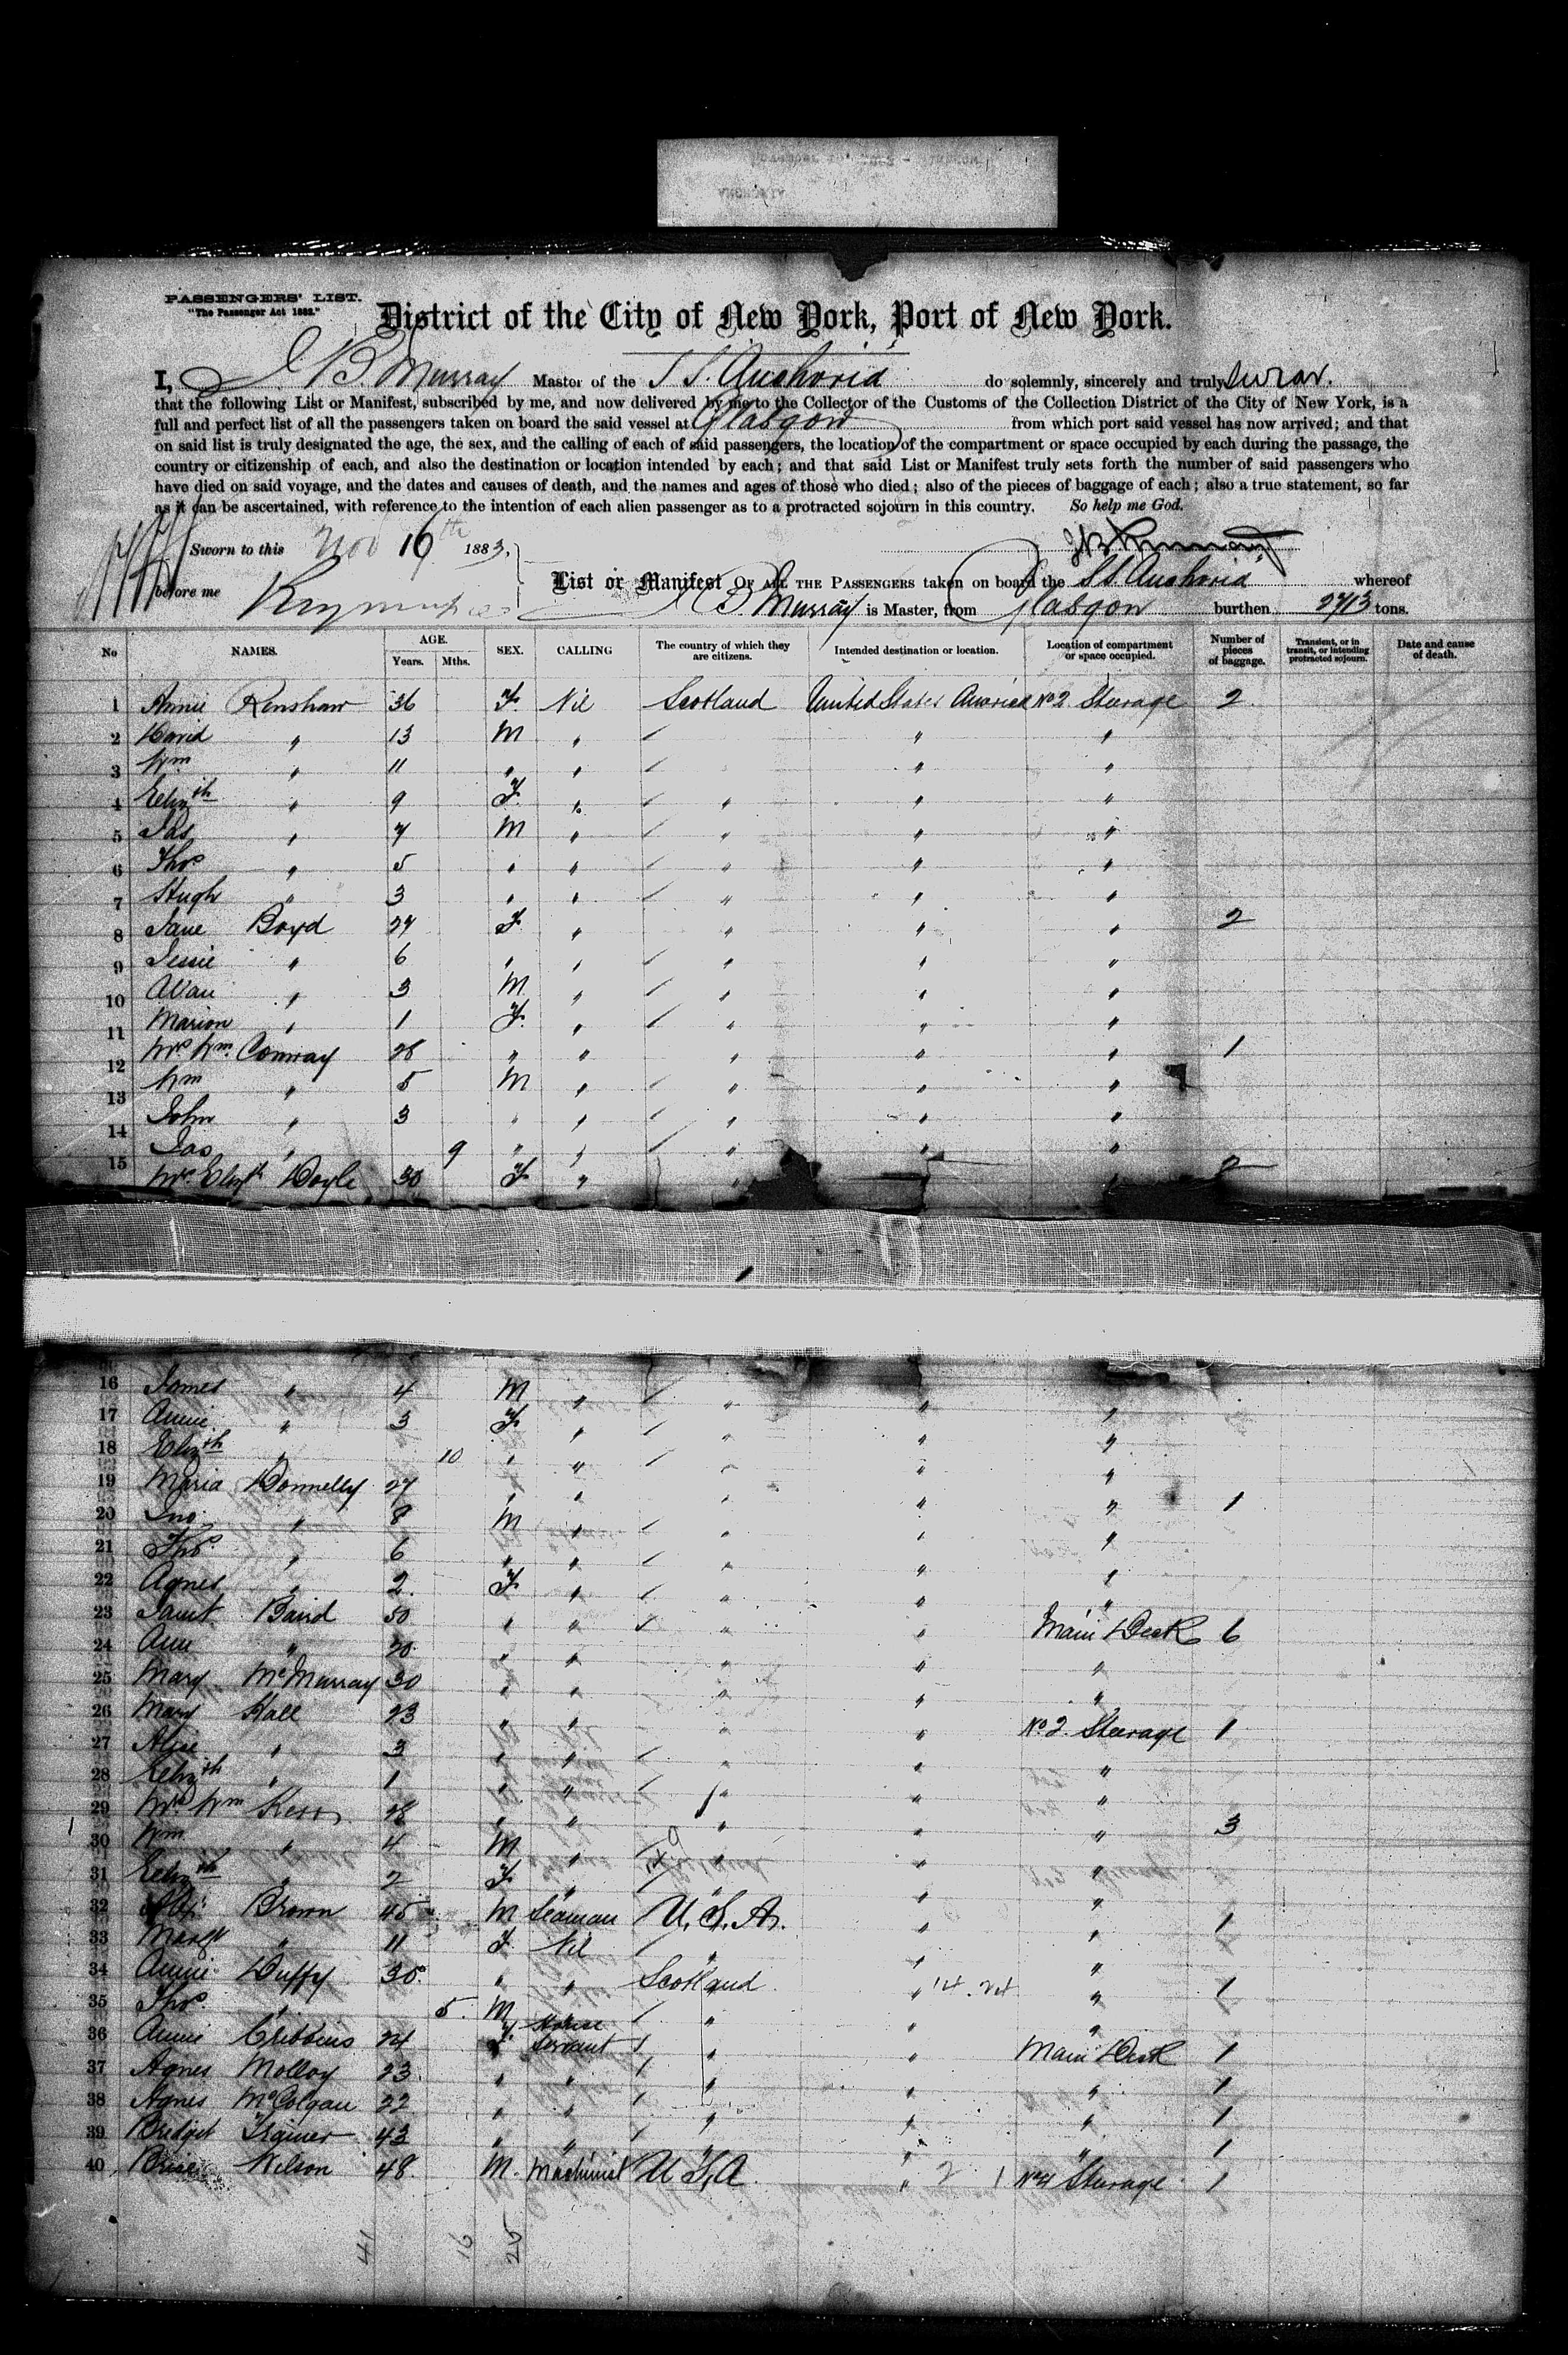 PASSENGERS' LIST.
"The Passenger Act 1882."
District of the City of New York, Port of New York.
I, J B. Murray Master of the S S. Anchoria do solemnly, sincerely and truly swear.
that the following List or Manifest, subscribed by me, and now delivered by me to the Collector of the Customs of the Collection District of the City of New York, is a
full and perfect list of all the passengers taken on board the said vessel at Glasgow from which port said vessel has now arrived; and that
on said list is truly designated the age, the sex, and the calling of each of said passengers, the location of the compartment or space occupied by each during the passage, the
country or citizenship of each, and also the destination or location intended by each; and that said List or Manifest truly sets forth the number of said passengers who
have died on said voyage, and the dates and causes of death, and the names and ages of those who died; also of the pieces of baggage of each; also a true statement, so far
as it can be ascertained, with reference to the intention of each alien passenger as to a protracted sojourn in this country. So help me God.
Sworn to this Nov 16th 1883,
before me
List or Manifest OF ALL THE PASSENGERS taken on board the S S. Anchoria whereof
J B Murray is Master, from Glasgow burthen 2713 tons.
No NAMES. AGE. Years. Mths. SEX. CALLING The country of which they are citizens. Intended destination or location. Location of compartment or space occupied. Number of pieces of baggage. Transient, or in transit, or intending protracted sojourn. Date and cause of death.
1 Annie Renshaw 36 F. Nil Scotland United States America No 2 Steerage 2
2 David " 13 M " " "
3 Wm " 11 " " " "
4 Elizth " 9 F. " " " "
5 Jas " 7 M " " " "
6 Thos " 5 " " " " "
7 Hugh " 3 " " " " "
8 Jane Boyd 27 F " " " " 2
9 Jessie " 6 " " " " "
10 Allan " 3 M " " " "
11 Marion " 1 F. " " " "
12 Mrs Wm. Conway 28 " " " " " 1
13 Wm " 5 M " " " "
14 John " 3 " " " " "
15 Jas " 9 " " " " "
Mrs Elizth Doyle 30 F " " " 2
16 James " 4 M " " " "
17 Annie " 3 F " " " "
18 Elizth " 10 " " " " "
19 Maria Donnelly 27 " " " " " 1
20 Jno. " 8 M " " " "
21 Thos " 6 " " " " "
22 Agnes " 2 F " " " "
23 Janet Baird 50 " " " " Main Deck 6
24 Ann " 20 " " " " "
25 Mary McMurray 30 " " " " "
26 Mary Hall 23 " " " " No 2 Steerage 1
27 Alice " 3 " " " "
28 Elizth " 1 " " " " "
29 Mrs Wm Kerr 28 " " " " " 3
30 Wm " 4 M " " " "
31 Elizth " 2 F " " " "
32 Brown 45 M Seaman U. S. A. " " 1
33 Margt " 11 F Nil " " "
34 Annie Duffy 30 " " Scotland " " 1
35 Thos. " 5 M " " "
36 Annie Cribbins 24 F. Servant " " Main Deck 1
37 Agnes Molloy 23 " " " " " 1
38 Agnes McColgan 22 " " " " " 1
39 Bridget Trainer 43 " " " " " 1
40 Wilson 48 M. Machinist U S, A " Steerage 1
41 16 25